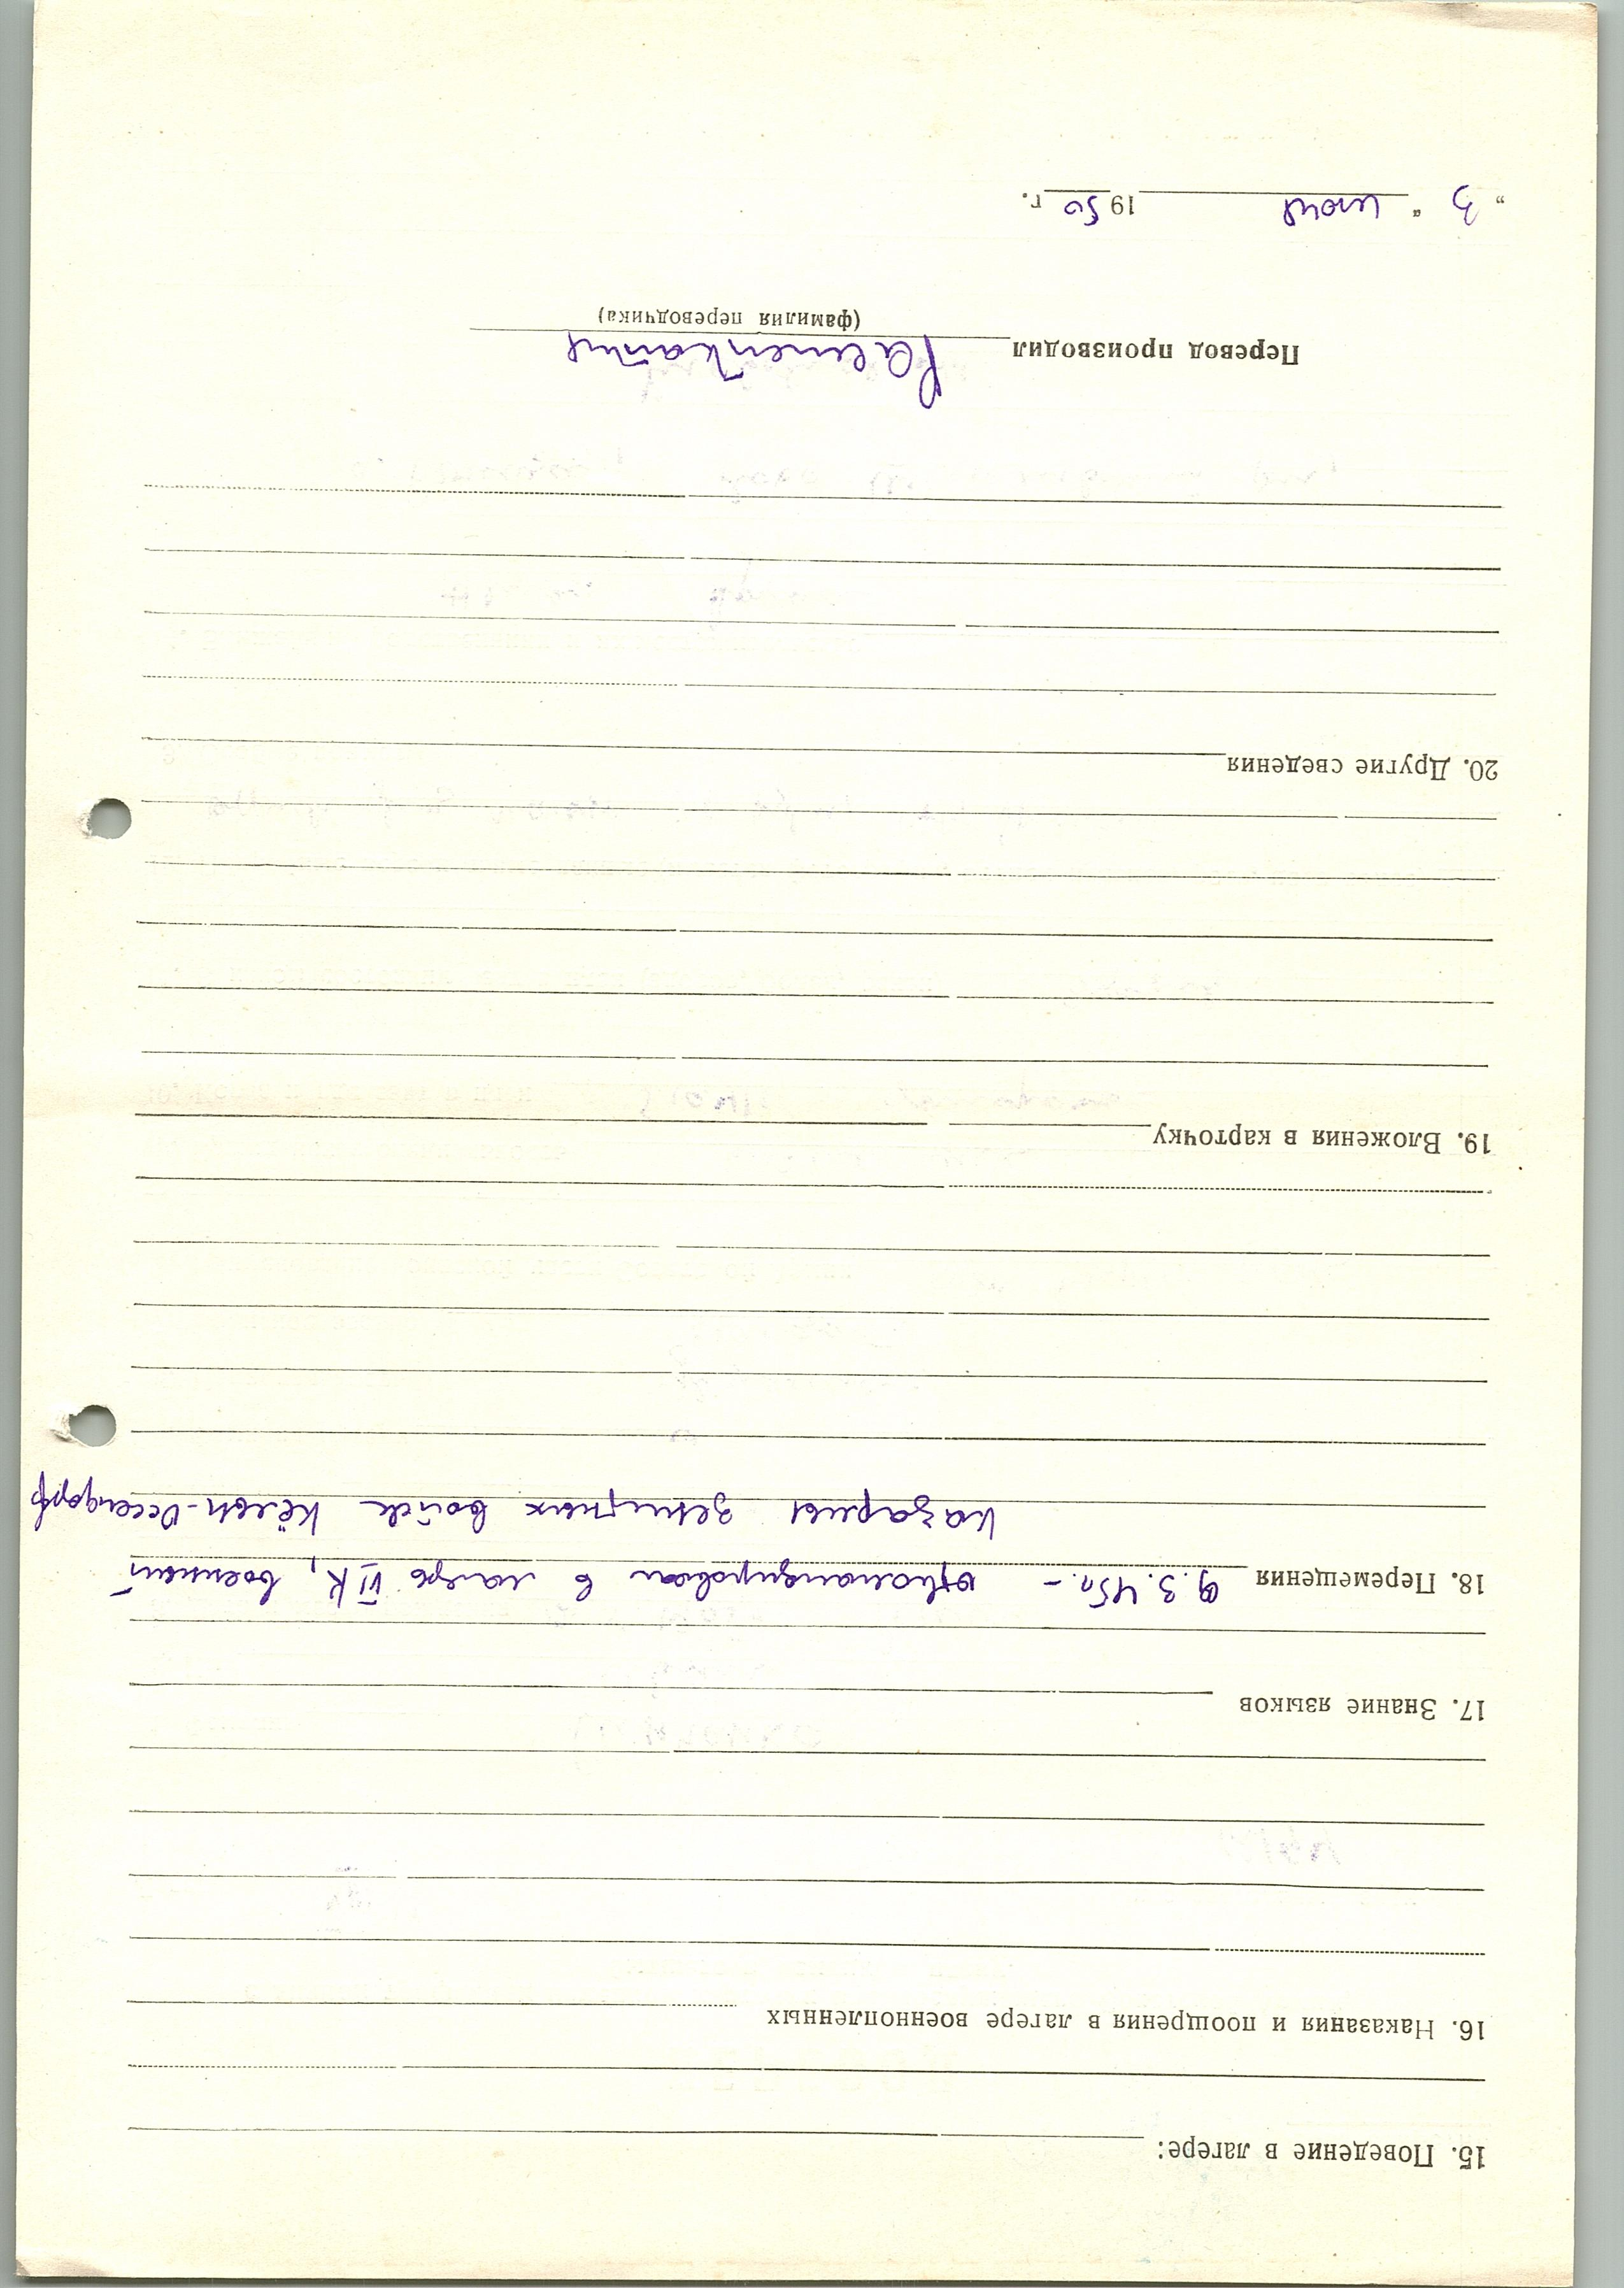 15. Поведение в лагере:
16. Наказания и поощрения в лагере военнопленных
17. Знание языков
18. Перемещения 9.3.45г. – откомандирован в лагерь VI K, военной
казармы зенитных войск Кёльн-Оссендорф
19. Вложения в карточку
20. Другие сведения
Перевод производил
(фамилия переводчика)
„ 3 “ июня 1950 г.